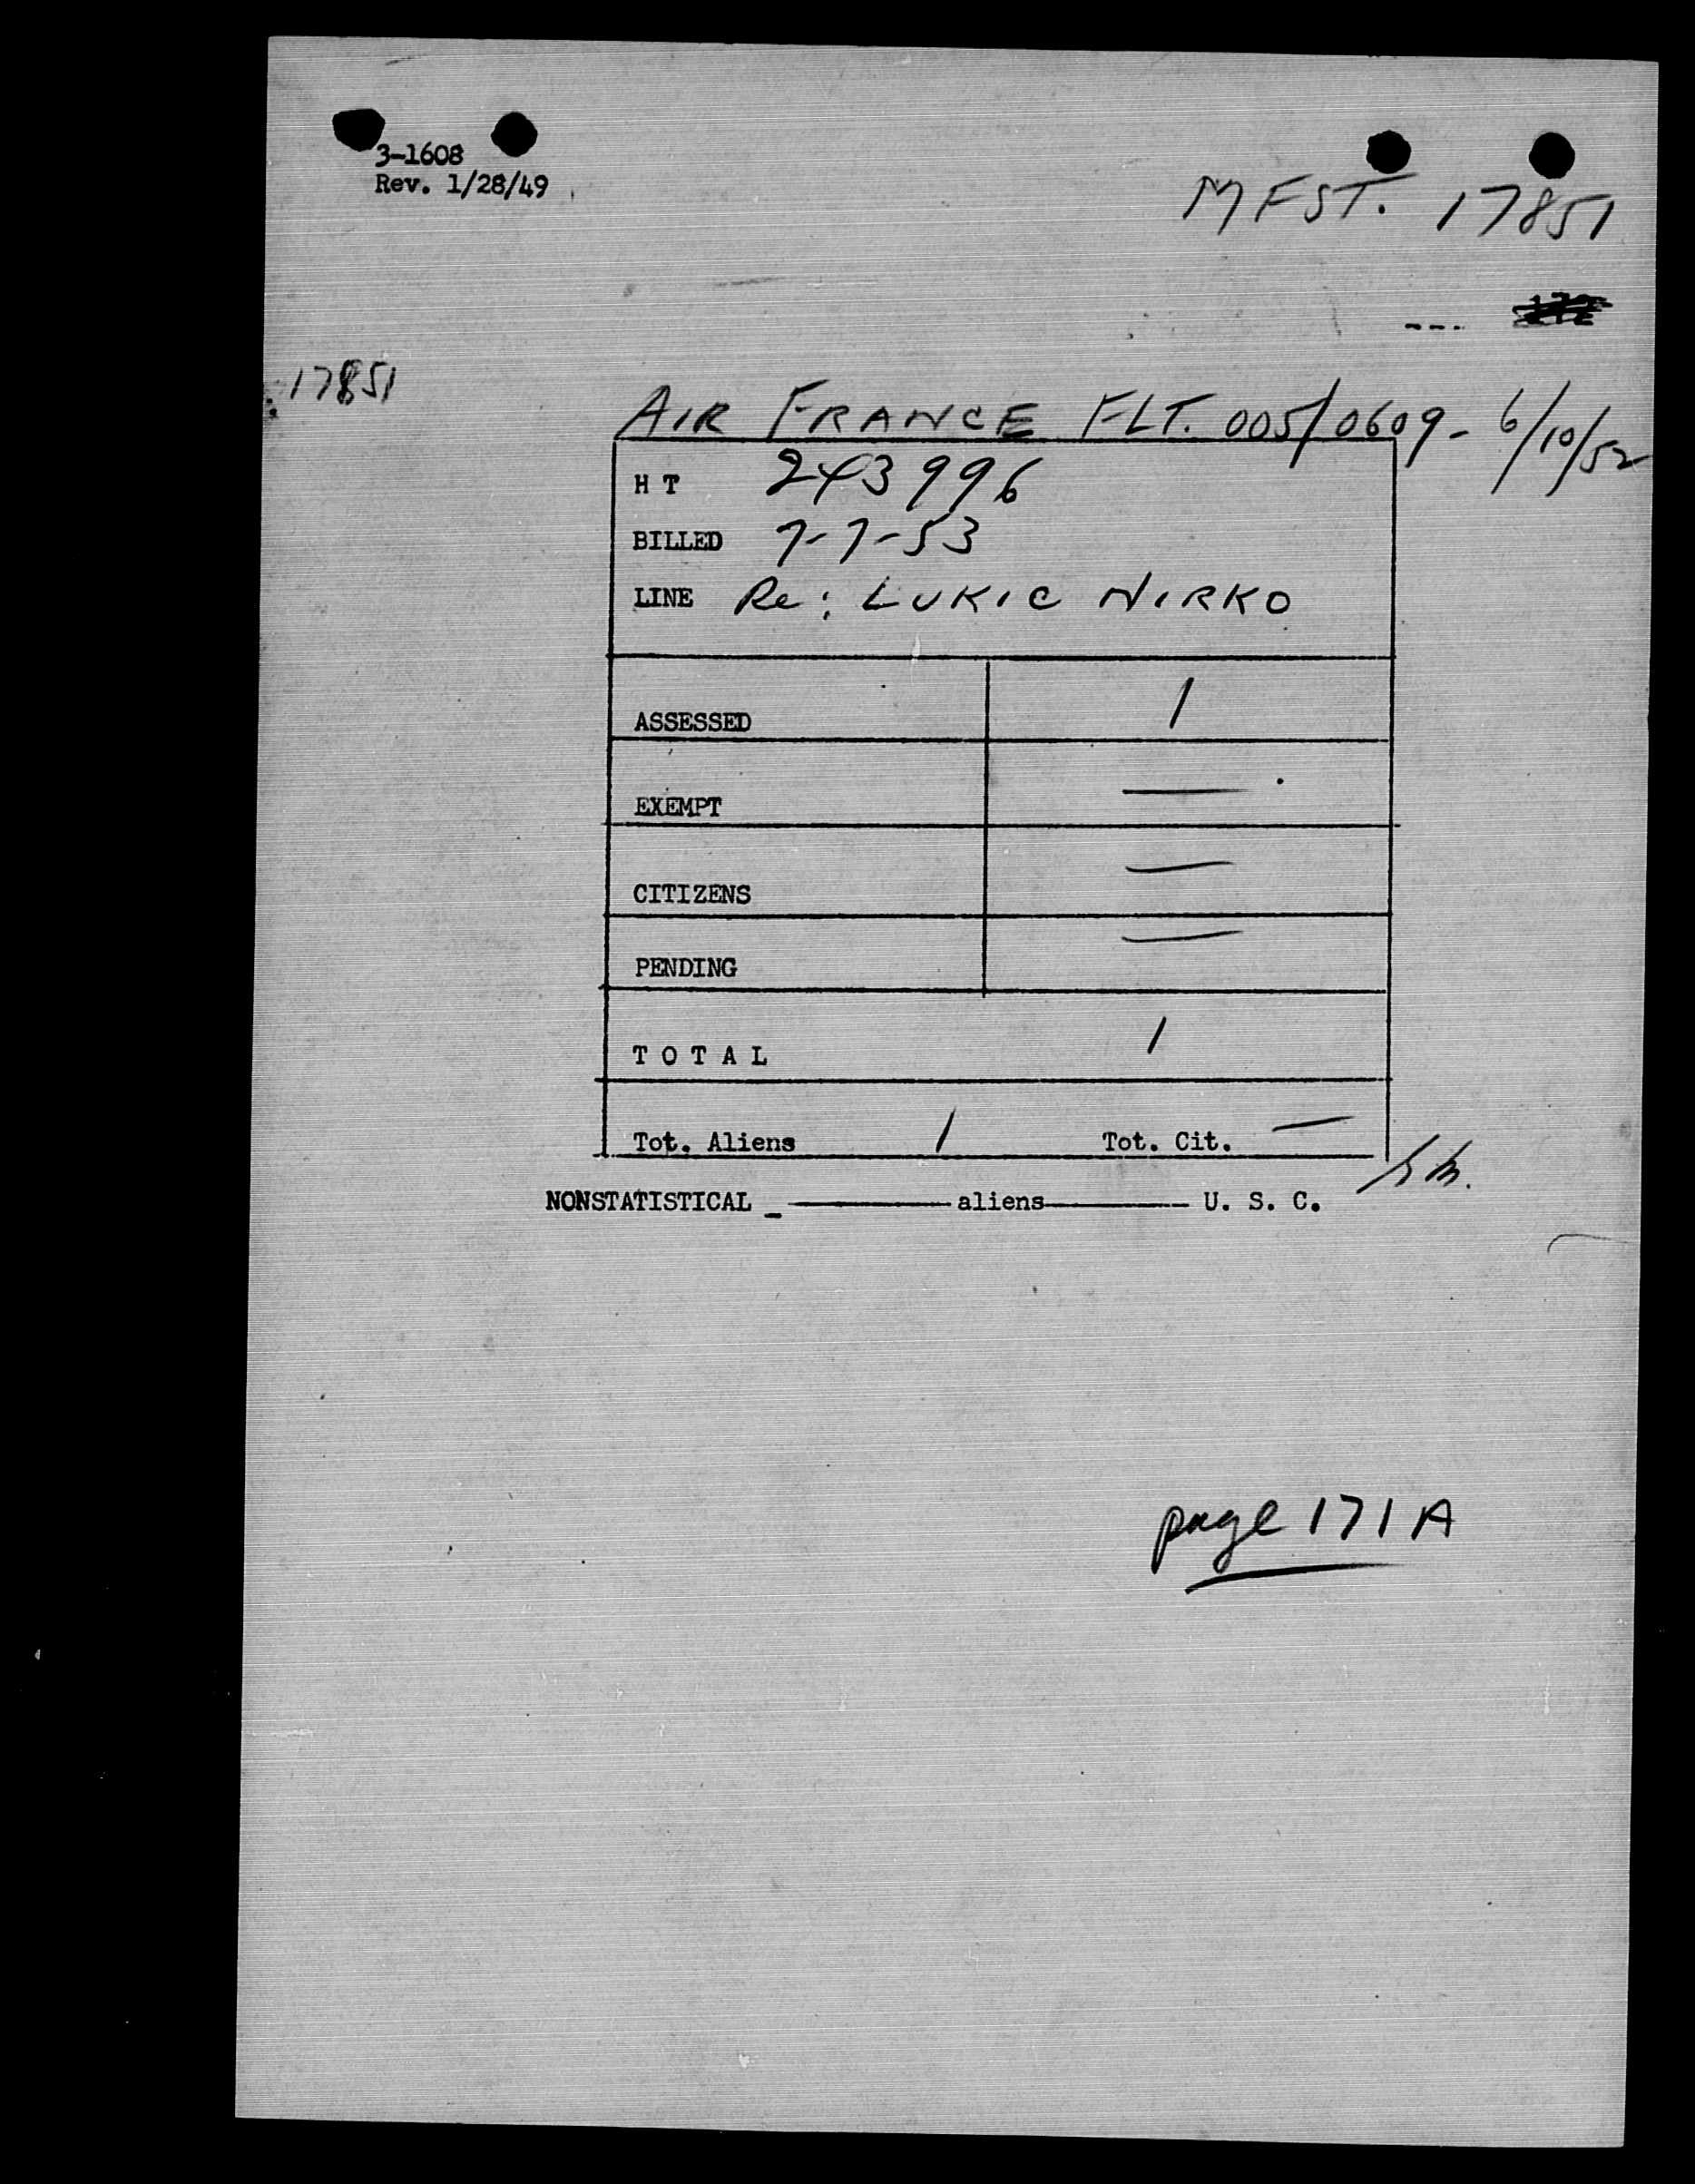 3-1608
Rev. 1/28/49
MFST. 17851
17851
AIR FRANCE FLT. 005/0609 - 6/10/52
H T 243996
BILLED 7-7-53
LINE Re: LUKIC NIRKO
ASSESSED 1
EXEMPT —
CITIZENS —
PENDING —
T O T A L 1
Tot. Aliens 1 Tot. Cit. —
NONSTATISTICAL _ ——— aliens ——— U. S. C.
page 171A